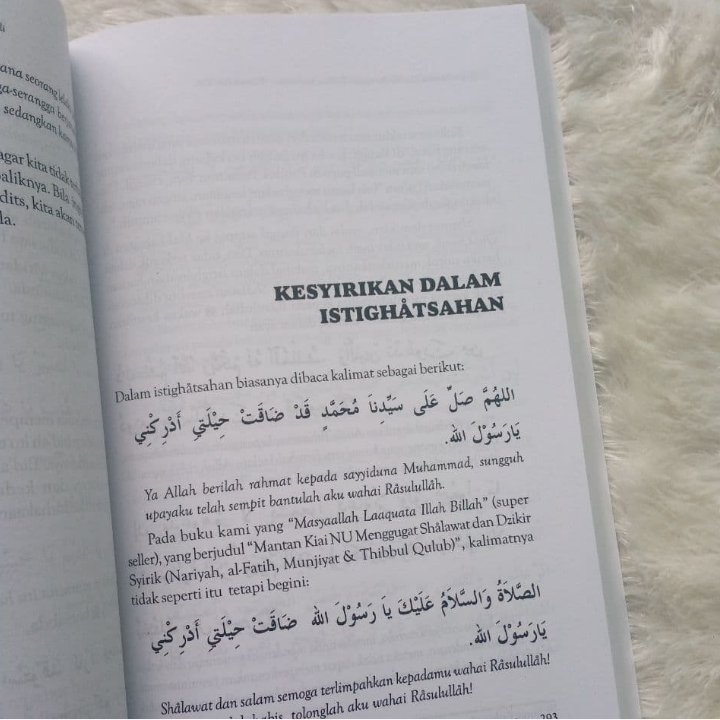 li
ana seorang
ga-serangga
sedangkan
agar kita tidak
aliknya. Bila
dits, kita akan
la.
KESYIRIKAN DALAM
ISTIGHÅTSAHAN
Dalam istighâtsahan biasanya dibaca kalimat sebagai berikut:
اللهُمَّ صَلِّ عَلَى سَيِّدِنَا مُحَمَّدٍ قَدْ ضَاقَتْ حِيْلَتِي أَدْرِكْنِي
يَارَسُوْلَ الله.
Ya Allah berilah rahmat kepada sayyiduna Muhammad, sungguh
upayaku telah sempit bantulah aku wahai Râsulullâh.
Pada buku kami yang “Masyaallah Laaquata Illah Billah” (super
seller), yang berjudul “Mantan Kiai NU Menggugat Shâlawat dan Dzikir
Syirik (Nariyah, al-Fatih, Munjiyat & Thibbul Qulub)”, kalimatnya
tidak seperti itu tetapi begini:
الصَّلَاةُ وَالسَّلَامُ عَلَيْكَ يَا رَسُوْلَ الله ضَاقَتْ حِيْلَتِي أَدْرِكْنِي
يَارَسُوْلَ الله.
Shâlawat dan salam semoga terlimpahkan kepadamu wahai Râsulullâh!
habis, tolonglah aku wahai Râsulullâh!
293